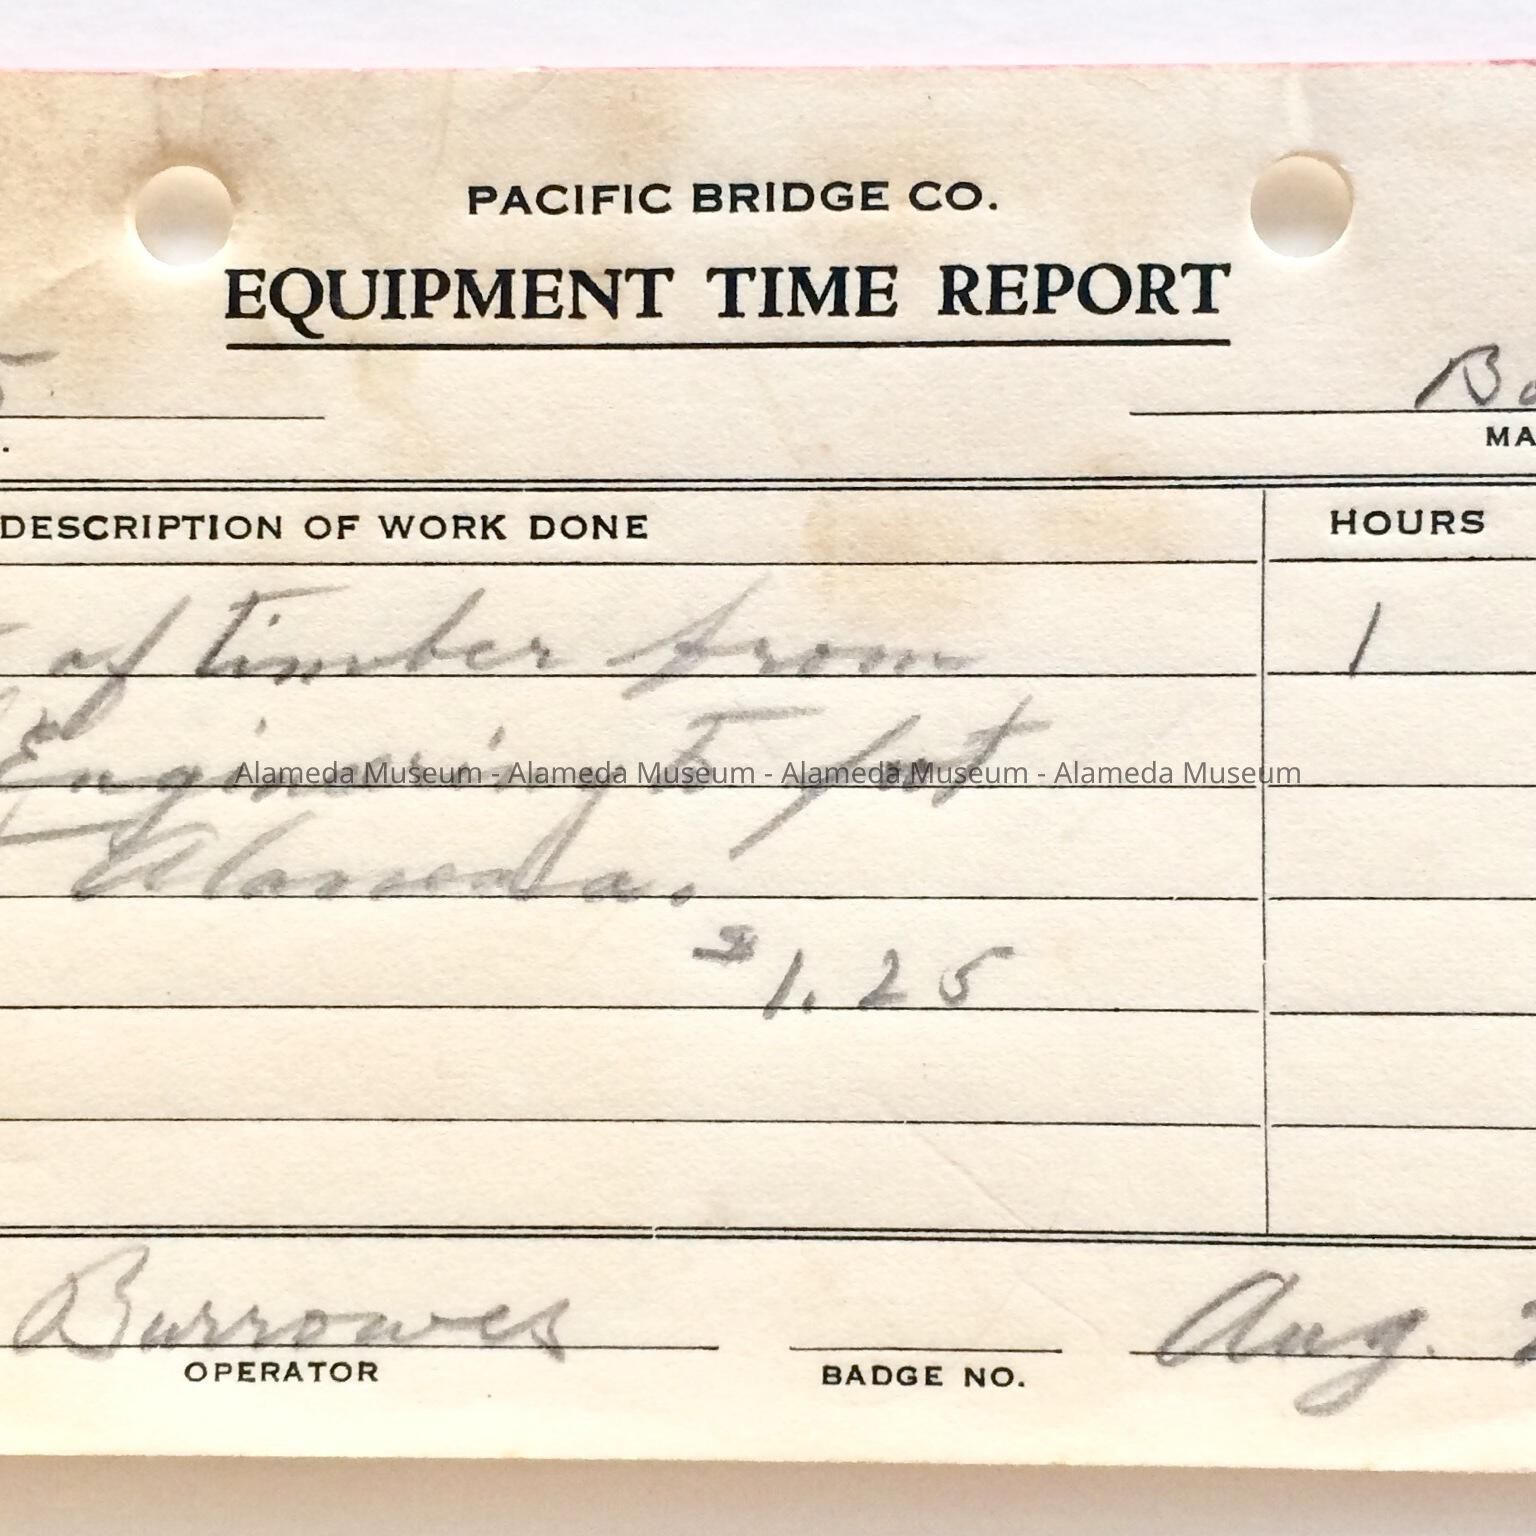 PACIFIC BRIDGE CO.
EQUIPMENT TIME REPORT
5
Bo
MA
DESCRIPTION OF WORK DONE HOURS
of timber from 1
Engineering to foot
Alameda Museum - Alameda Museum - Alameda Museum - Alameda Museum
Alameda.
$1.25
Burrowes Aug. 2
OPERATOR BADGE NO.